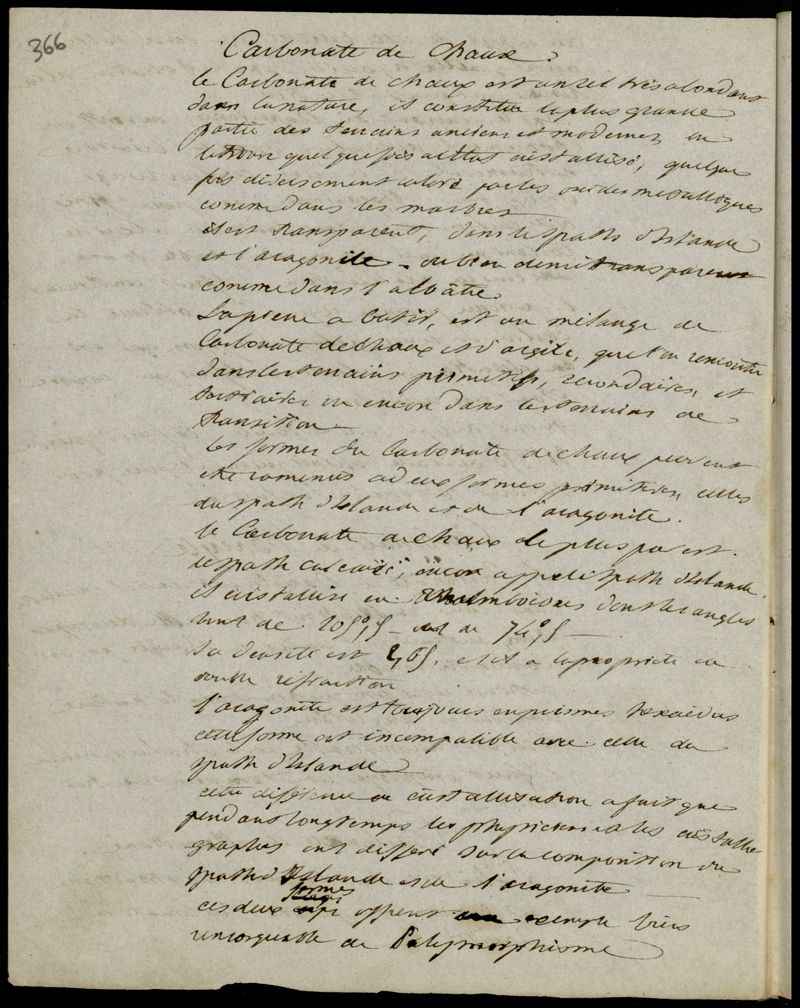 366
Carbonate de chaux.
le Carbonate de chaux est un sel très abondant
dans la nature, il constitue la plus grande
partie des terrains anciens et modernes, on
le trouve quelquefois a l'état cristallisé, quelque
fois diversement coloré par les oxides metalliques
comme dans les marbres
il est transparent, dans le spath d'Islande
et l'aragonite - ou bien demi transparent
comme dans l'albâtre
la pierre a batir, est un mélange de
Carbonate de chaux et d'argile, que l'on rencontre
dans les terrains primitifs, secondaires, et
tertiaires ou encore dans les terrains de
transition
les formes du Carbonate de chaux peuvent
etre ramenées a deux formes primitives, celles
du spath d'Islande et de l'aragonite.
le Carbonate de chaux le plus pur est
le spath calcaire, encore appelé spath d'Islande.
il cristallise en Rhomboides dont les angles
sont de 105°,5 - et de 74°,5 -
sa densité est 2,65. et il a la propriété de
double refraction
l'aragonite est toujours en prismes hexaedres
cette forme est incompatible avec celle du
spath d'Islande
cette difference de cristallisation a fait que
pendant longtemps les physiciens et les cristallo
graphes ont differé sur la composition du
spath d'Islande et de l'aragonite
formes
ces deux offrent exemple bien
remarquable de Polymorphisme